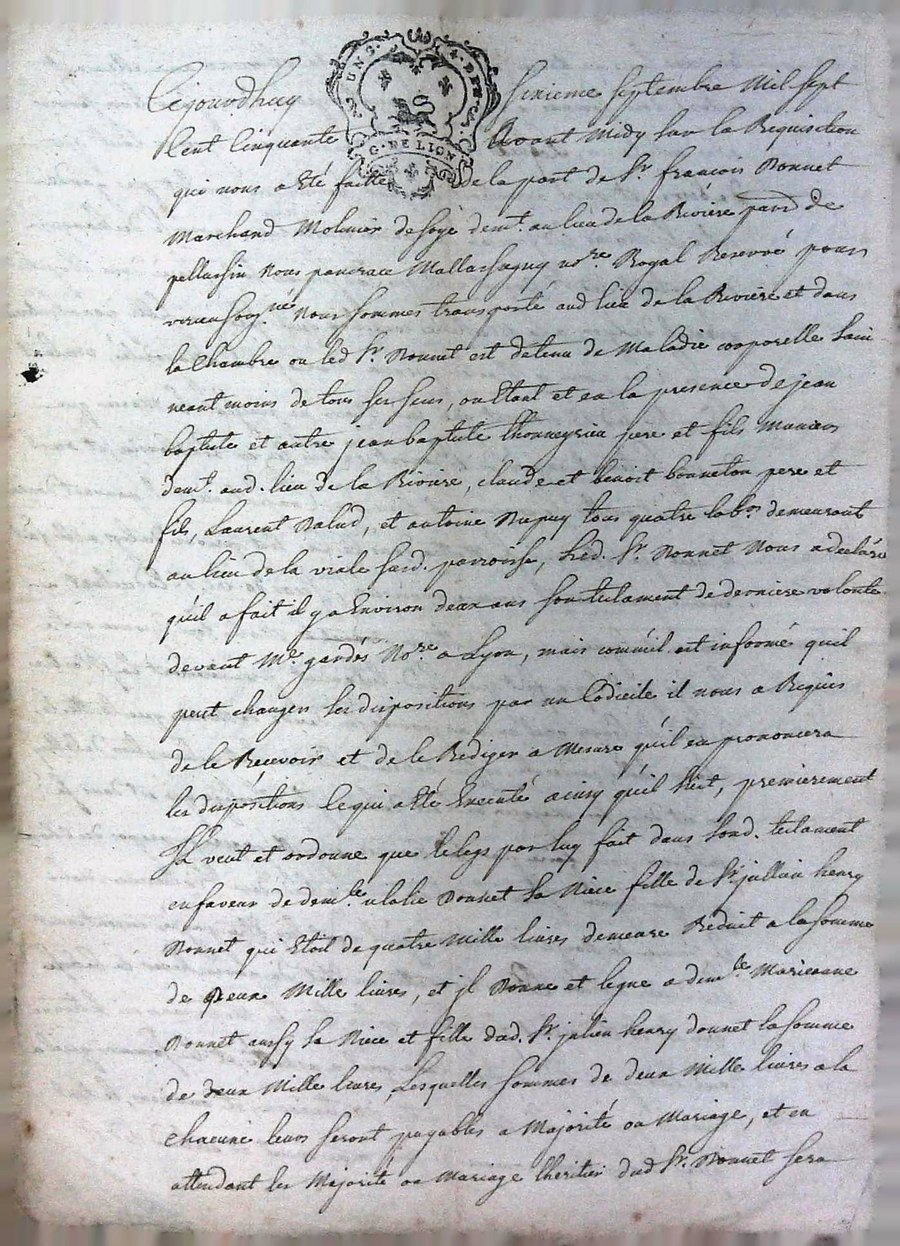 Cejourdhuy sixieme septembre Mil sept
UN S. 4. DEN.
G. DE LION
Cent Cinquante avant Midy sur la Requisition
qui nous a été faitte de la part de Sr. françois Donnet
Marchand Molinier de soye demt. au lieu de la Riviere parr. de
pellussin nous pancrace Mallassagny nore. Royal Reservé pour
verin soussigné Nous sommes transporté aud lieu de la Riviere et dans
la Chambre ou led Sr. Donnet est detenu de Maladie corporelle sain
neant moins de tous ses sens, ou Etant et en la presence de jean
baptiste et autre jean baptiste thonneyrieu pere et fils
demt. aud. lieu de la Riviere, claude et benoit bonneton pere et
fils, Laurent Dalud, et antoine Dupuy tous quatre labrs. demeurant
au lieu de la viale susd. parroisse, Led. Sr. Donnet Nous a declaré
qu'il a fait il y a Environ deux ans son testament de derniere volonte
devant Me. gardes Nore. a Lyon, mais comm'il est informé quil
peut changer ses dispositions par un Codicile il nous a Requis
de le Recevoir et de le Rediger a Mesure qu'il en prononcera
les dispositions ce qui a été Executé ainsy qu'il suit, premierement
Il veut et ordonne que le legs par luy fait dans sond. testament
en faveur de demlle. ulalie Donnet sa Niece fille de Sr. jullien henry
Donnet qui Etoit de quatre Mille livres demeure Reduit a la somme
de Deux Mille livres, et jl Donne et legue a demlle. Marieanne
Donnet aussy sa Niece et fille dud. Sr. julien henry donnet la somme
de deux Mille livres, Lesquelles sommes de deux Mille livres a la
chacune leurs seront payables a Majorité ou Mariage, et en
attendant les Majorité ou Mariage lheritier dud Sr. Donnet sera